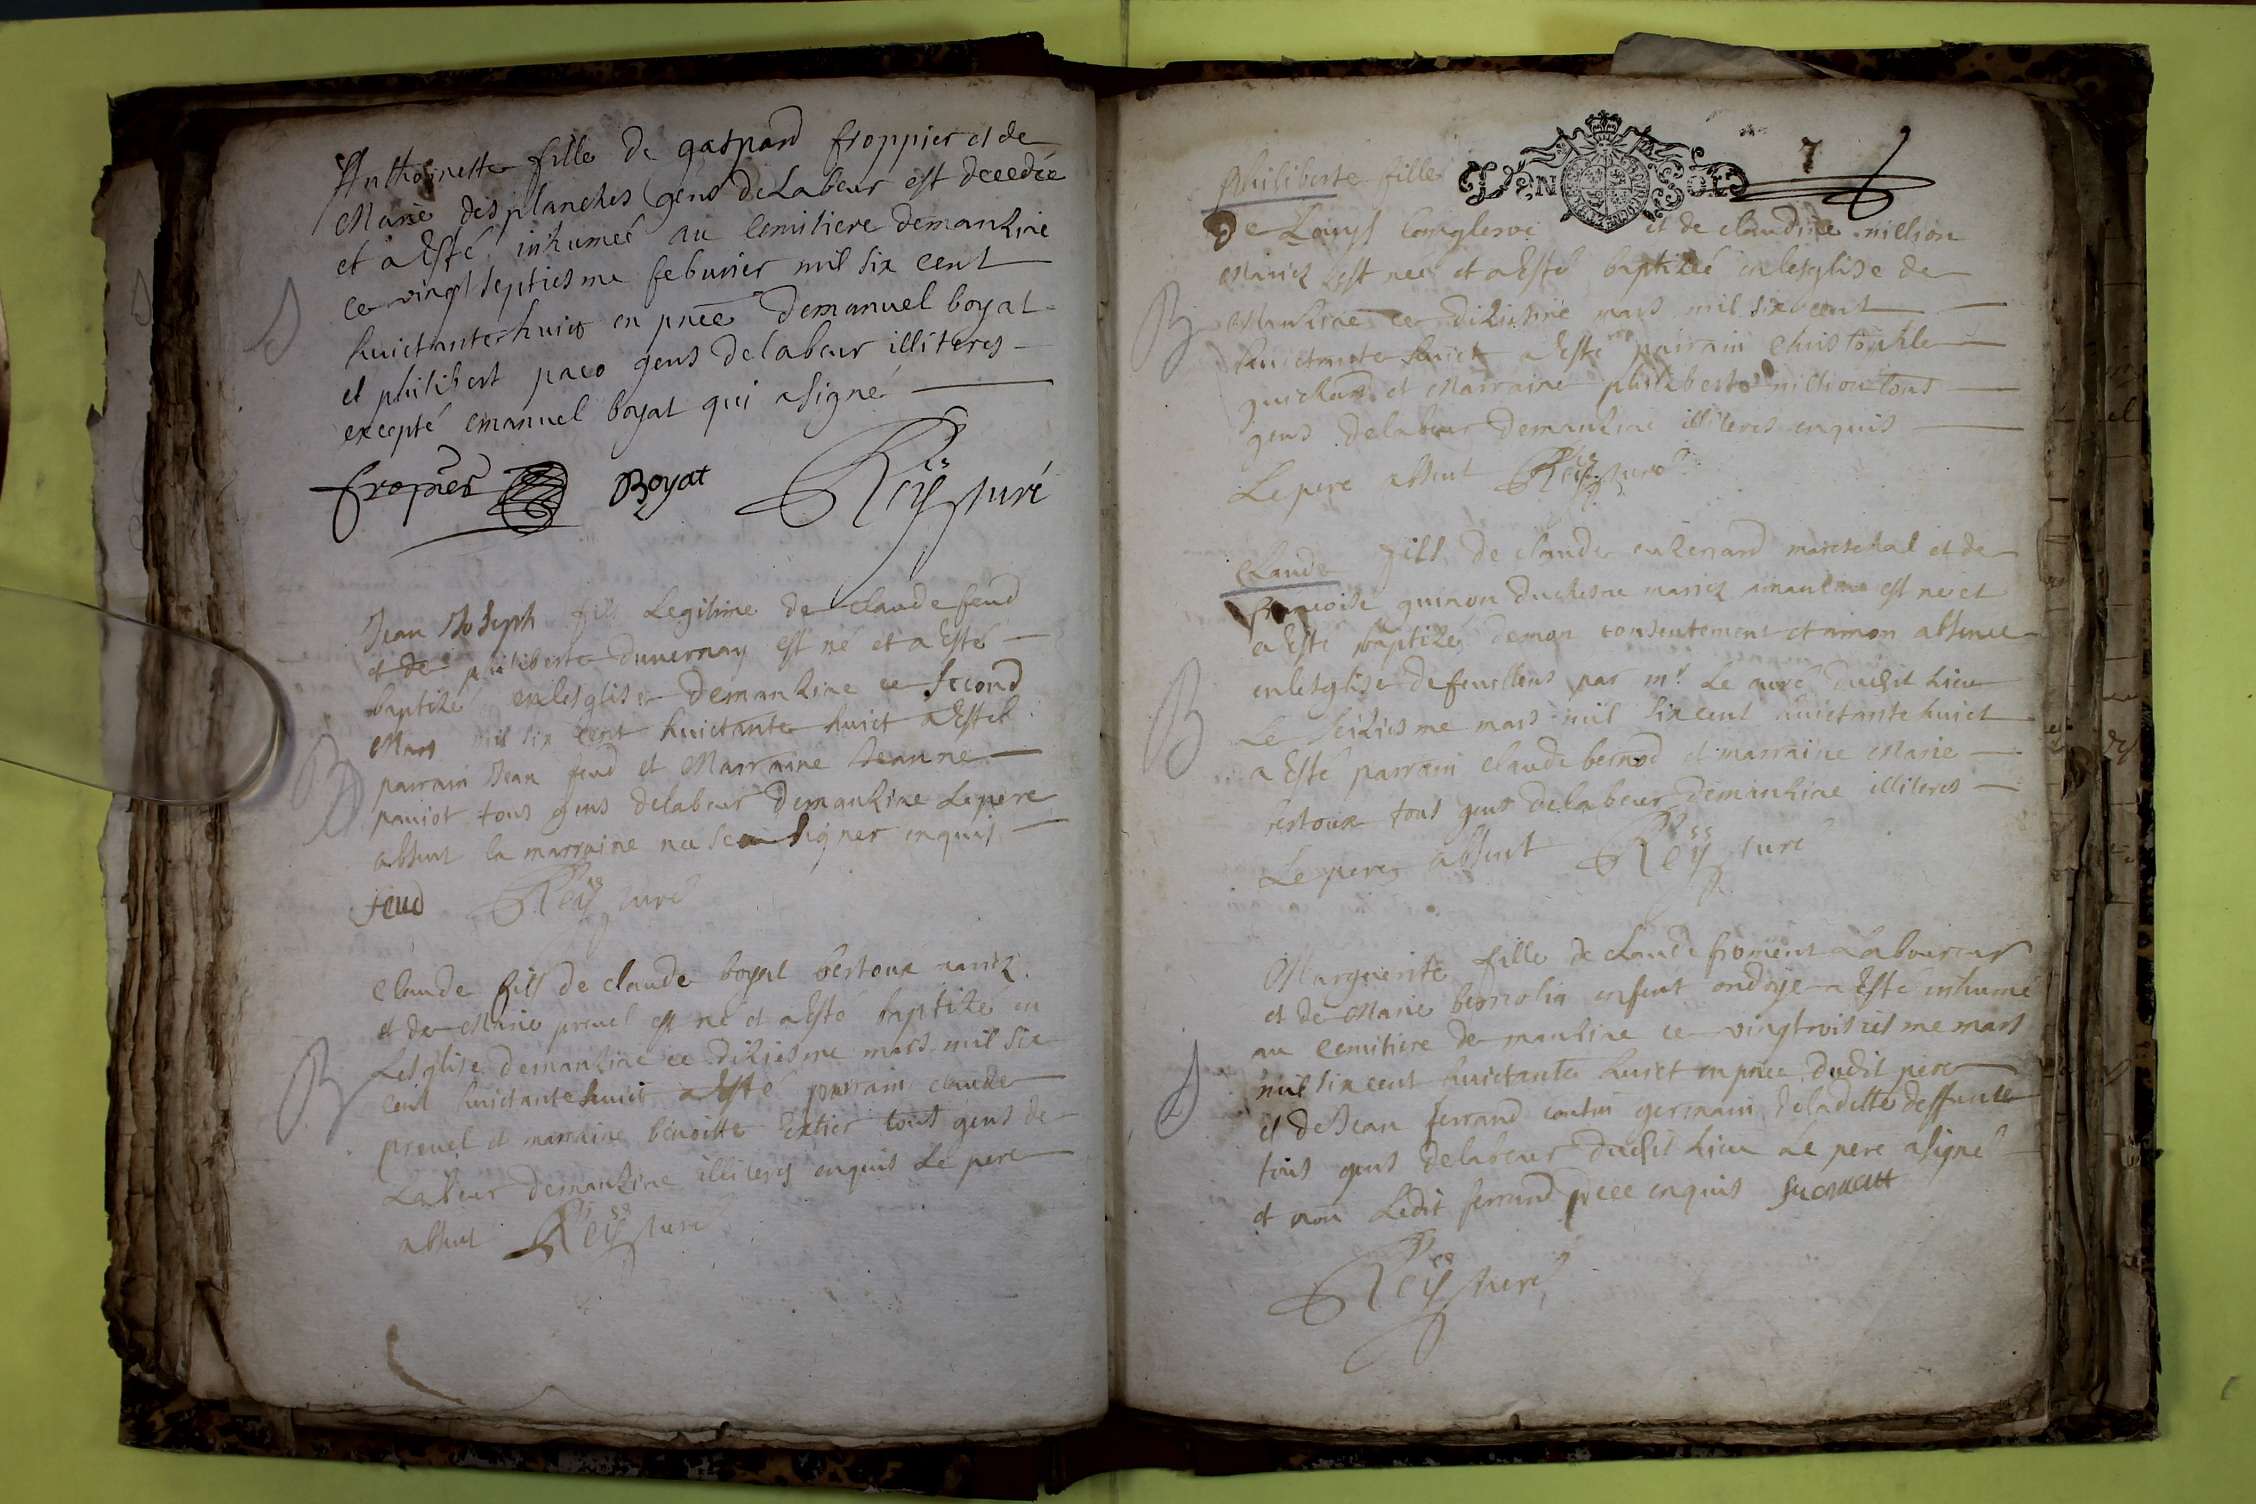 Anthoinette fille de gaspard froppier et de
Marie desplanches gens de Labeur est decedée
et a Esté inhumeé au Cemitiere demanzia
ce vingt septiesme febvrier mil six cent
huictantehuict en pnce demanuel boyat
et philibert paco gens delabeur illiteres
excepté emanuel boyat qui a signé
fropier Boyat Reÿ curé
B
Jean Joseph fils Legitime de claude feud
et de philiberte duvernay est né et a Esté
baptizé enlesglise demanziac ce second
Mars mil six cent huictante huict a Esté
parrain Jean feud et Marraine Jeanne
paniot tous gens delabeur demanziac Le pere
absent la marraine na sceu signer enquis
feud Reÿ curé
B
Claude fils de claude boyat mariez
et de Marie prevel est né et a Esté baptizé en
Lesglise demanziac ce diziesme mars mil six
cent huictantehuict a Esté parrain claude
prevel et marraine benoitte tous gens de
Labeur demanziac illiteres enquis Le pere
absent Reÿ curé
7
philiberte fille
De Louys et de claudine nillion
Mariez Est neé et a Esté baptizeé enlesglise de
Manziac ce diziesme mars mil six cent
huictante huict a Esté parrain christophle
guichard et Marraine philiberte nillion tous
gens delabeur demanziac illiteres enquis
Le pere absent Reÿ curé
B
Claude fils de claude mareschal et de
francoise guinon duchesne mariez est né et
a Esté baptizé demon consentement et amon absence
enlesglise defeuillens par mr Le curé dudit Lieu
Le seiziesme mars mil six cent huictante huict
a Esté parrain claude bernod et marraine Marie
tous gens delabeur demanziac illiteres
Le pere absent Reÿ curé
Marguerite fille de claude froment Laboureur
et de Marie enfent ondoye a Esté inhumé
au Cemitiere de manziac ce vingtroisiesme mars
mil six cent huictante huict en pnce dudit pere
et de Jean ferrand cousin germain deladitte deffunte
tous gens delabeur dudit Lieu Le pere a signé
et non Ledit ferrand pour ce enquis froment
Reÿ curé